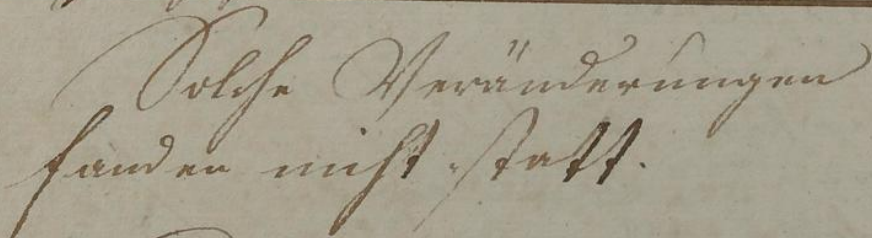 Solche Veränderungen
fanden nicht statt.